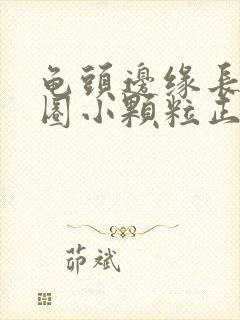 龟頭邊缘長
圈小顆粒正
茆斌